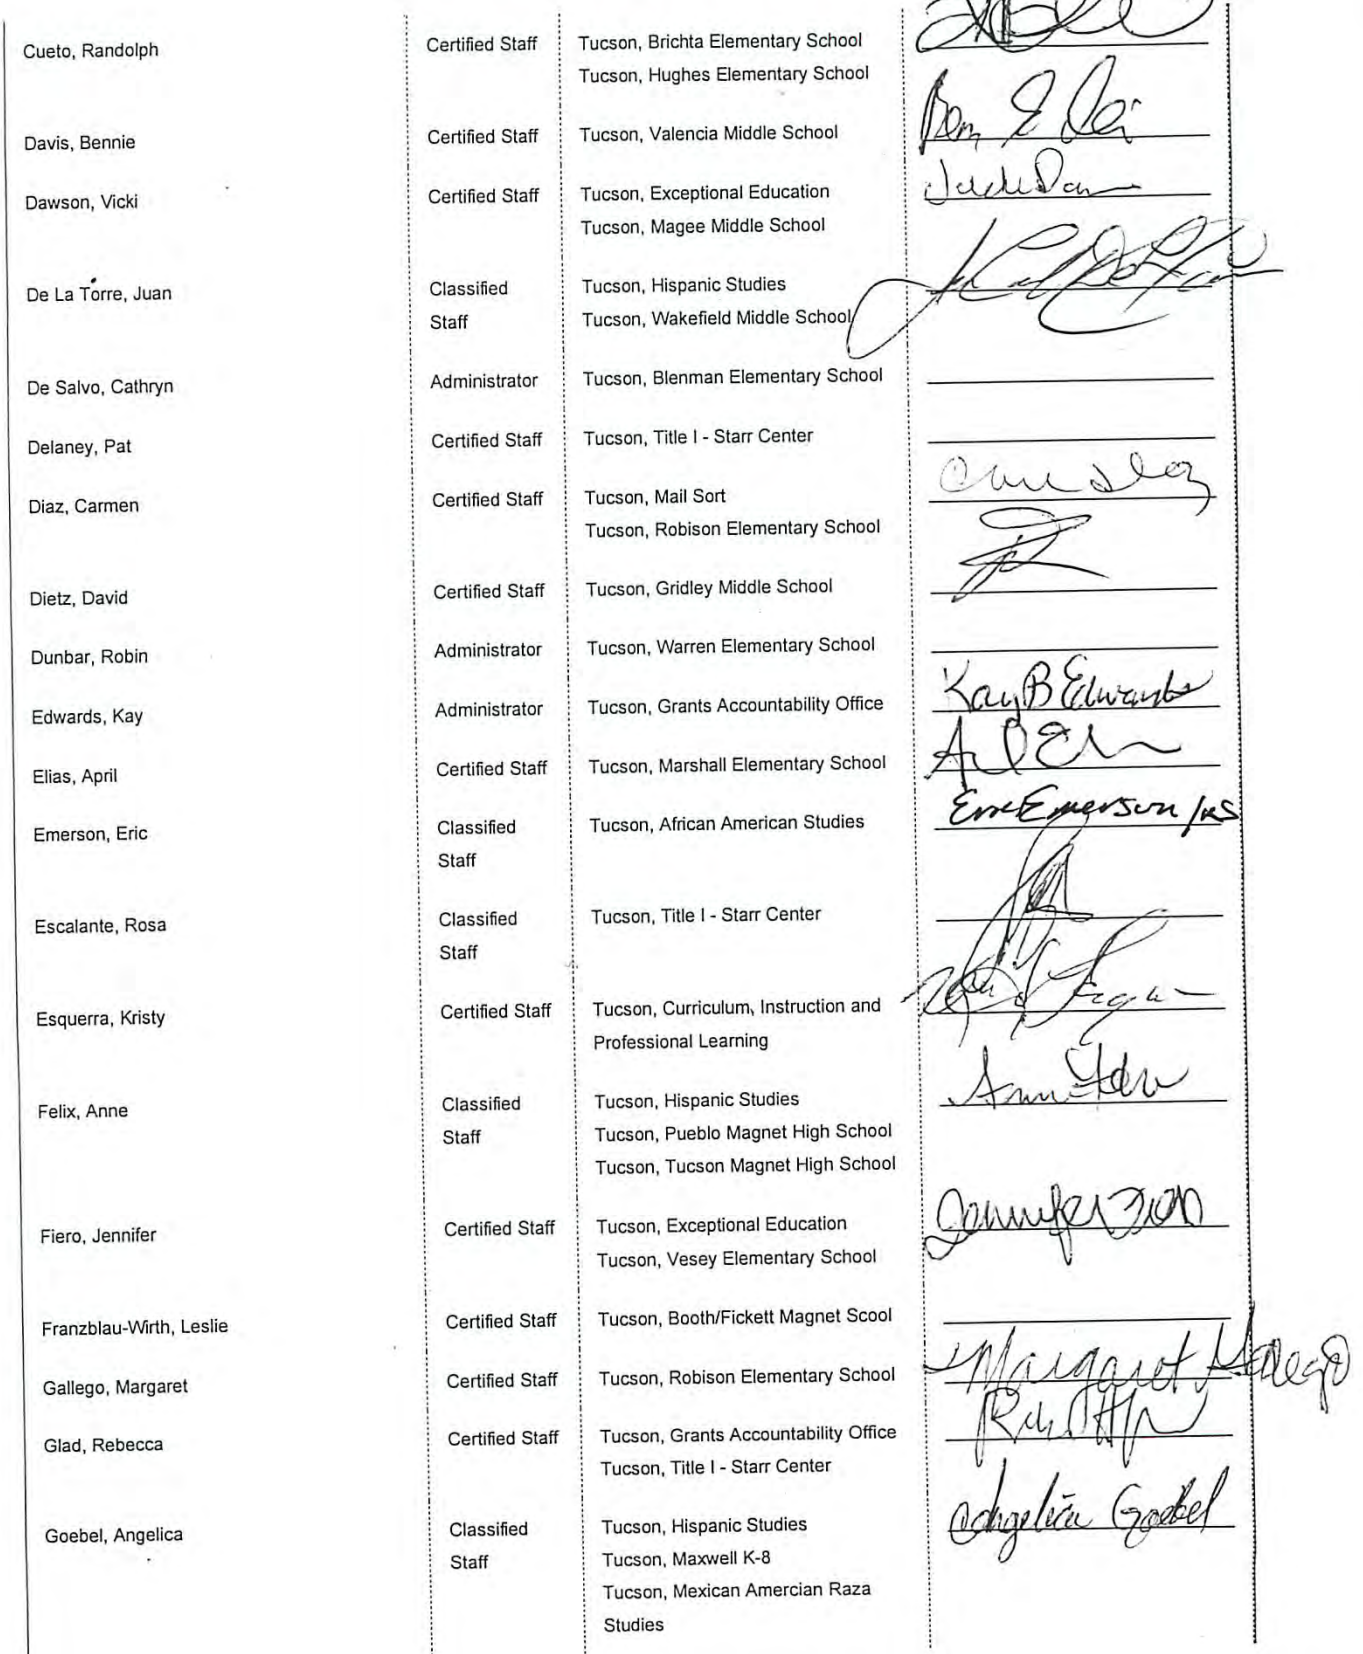 Cueto, Randolph Certified Staff Tucson, Brichta Elementary School
Tucson, Hughes Elementary School
Davis, Bennie Certified Staff Tucson, Valencia Middle School
Dawson, Vicki Certified Staff Tucson, Exceptional Education
Tucson, Magee Middle School
De La Torre, Juan Classified Tucson, Hispanic Studies
Staff Tucson, Wakefield Middle School
De Salvo, Cathryn Administrator Tucson, Blenman Elementary School
Delaney, Pat Certified Staff Tucson, Title I - Starr Center
Diaz, Carmen Certified Staff Tucson, Mail Sort
Tucson, Robison Elementary School
Dietz, David Certified Staff Tucson, Gridley Middle School
Dunbar, Robin Administrator Tucson, Warren Elementary School
Edwards, Kay Administrator Tucson, Grants Accountability Office Kay B Edwards
Elias, April Certified Staff Tucson, Marshall Elementary School
Emerson, Eric Classified Tucson, African American Studies Eric Emerson /RS
Staff
Escalante, Rosa Classified Tucson, Title I - Starr Center
Staff
Esquerra, Kristy Certified Staff Tucson, Curriculum, Instruction and
Professional Learning
Felix, Anne Classified Tucson, Hispanic Studies
Staff Tucson, Pueblo Magnet High School
Tucson, Tucson Magnet High School
Fiero, Jennifer Certified Staff Tucson, Exceptional Education Jennifer Fiero
Tucson, Vesey Elementary School
Franzblau-Wirth, Leslie Certified Staff Tucson, Booth/Fickett Magnet Scool
Gallego, Margaret Certified Staff Tucson, Robison Elementary School Margaret Gallego
Glad, Rebecca Certified Staff Tucson, Grants Accountability Office
Tucson, Title I - Starr Center
Goebel, Angelica Classified Tucson, Hispanic Studies Angelica Goebel
Staff Tucson, Maxwell K-8
Tucson, Mexican Amercian Raza
Studies